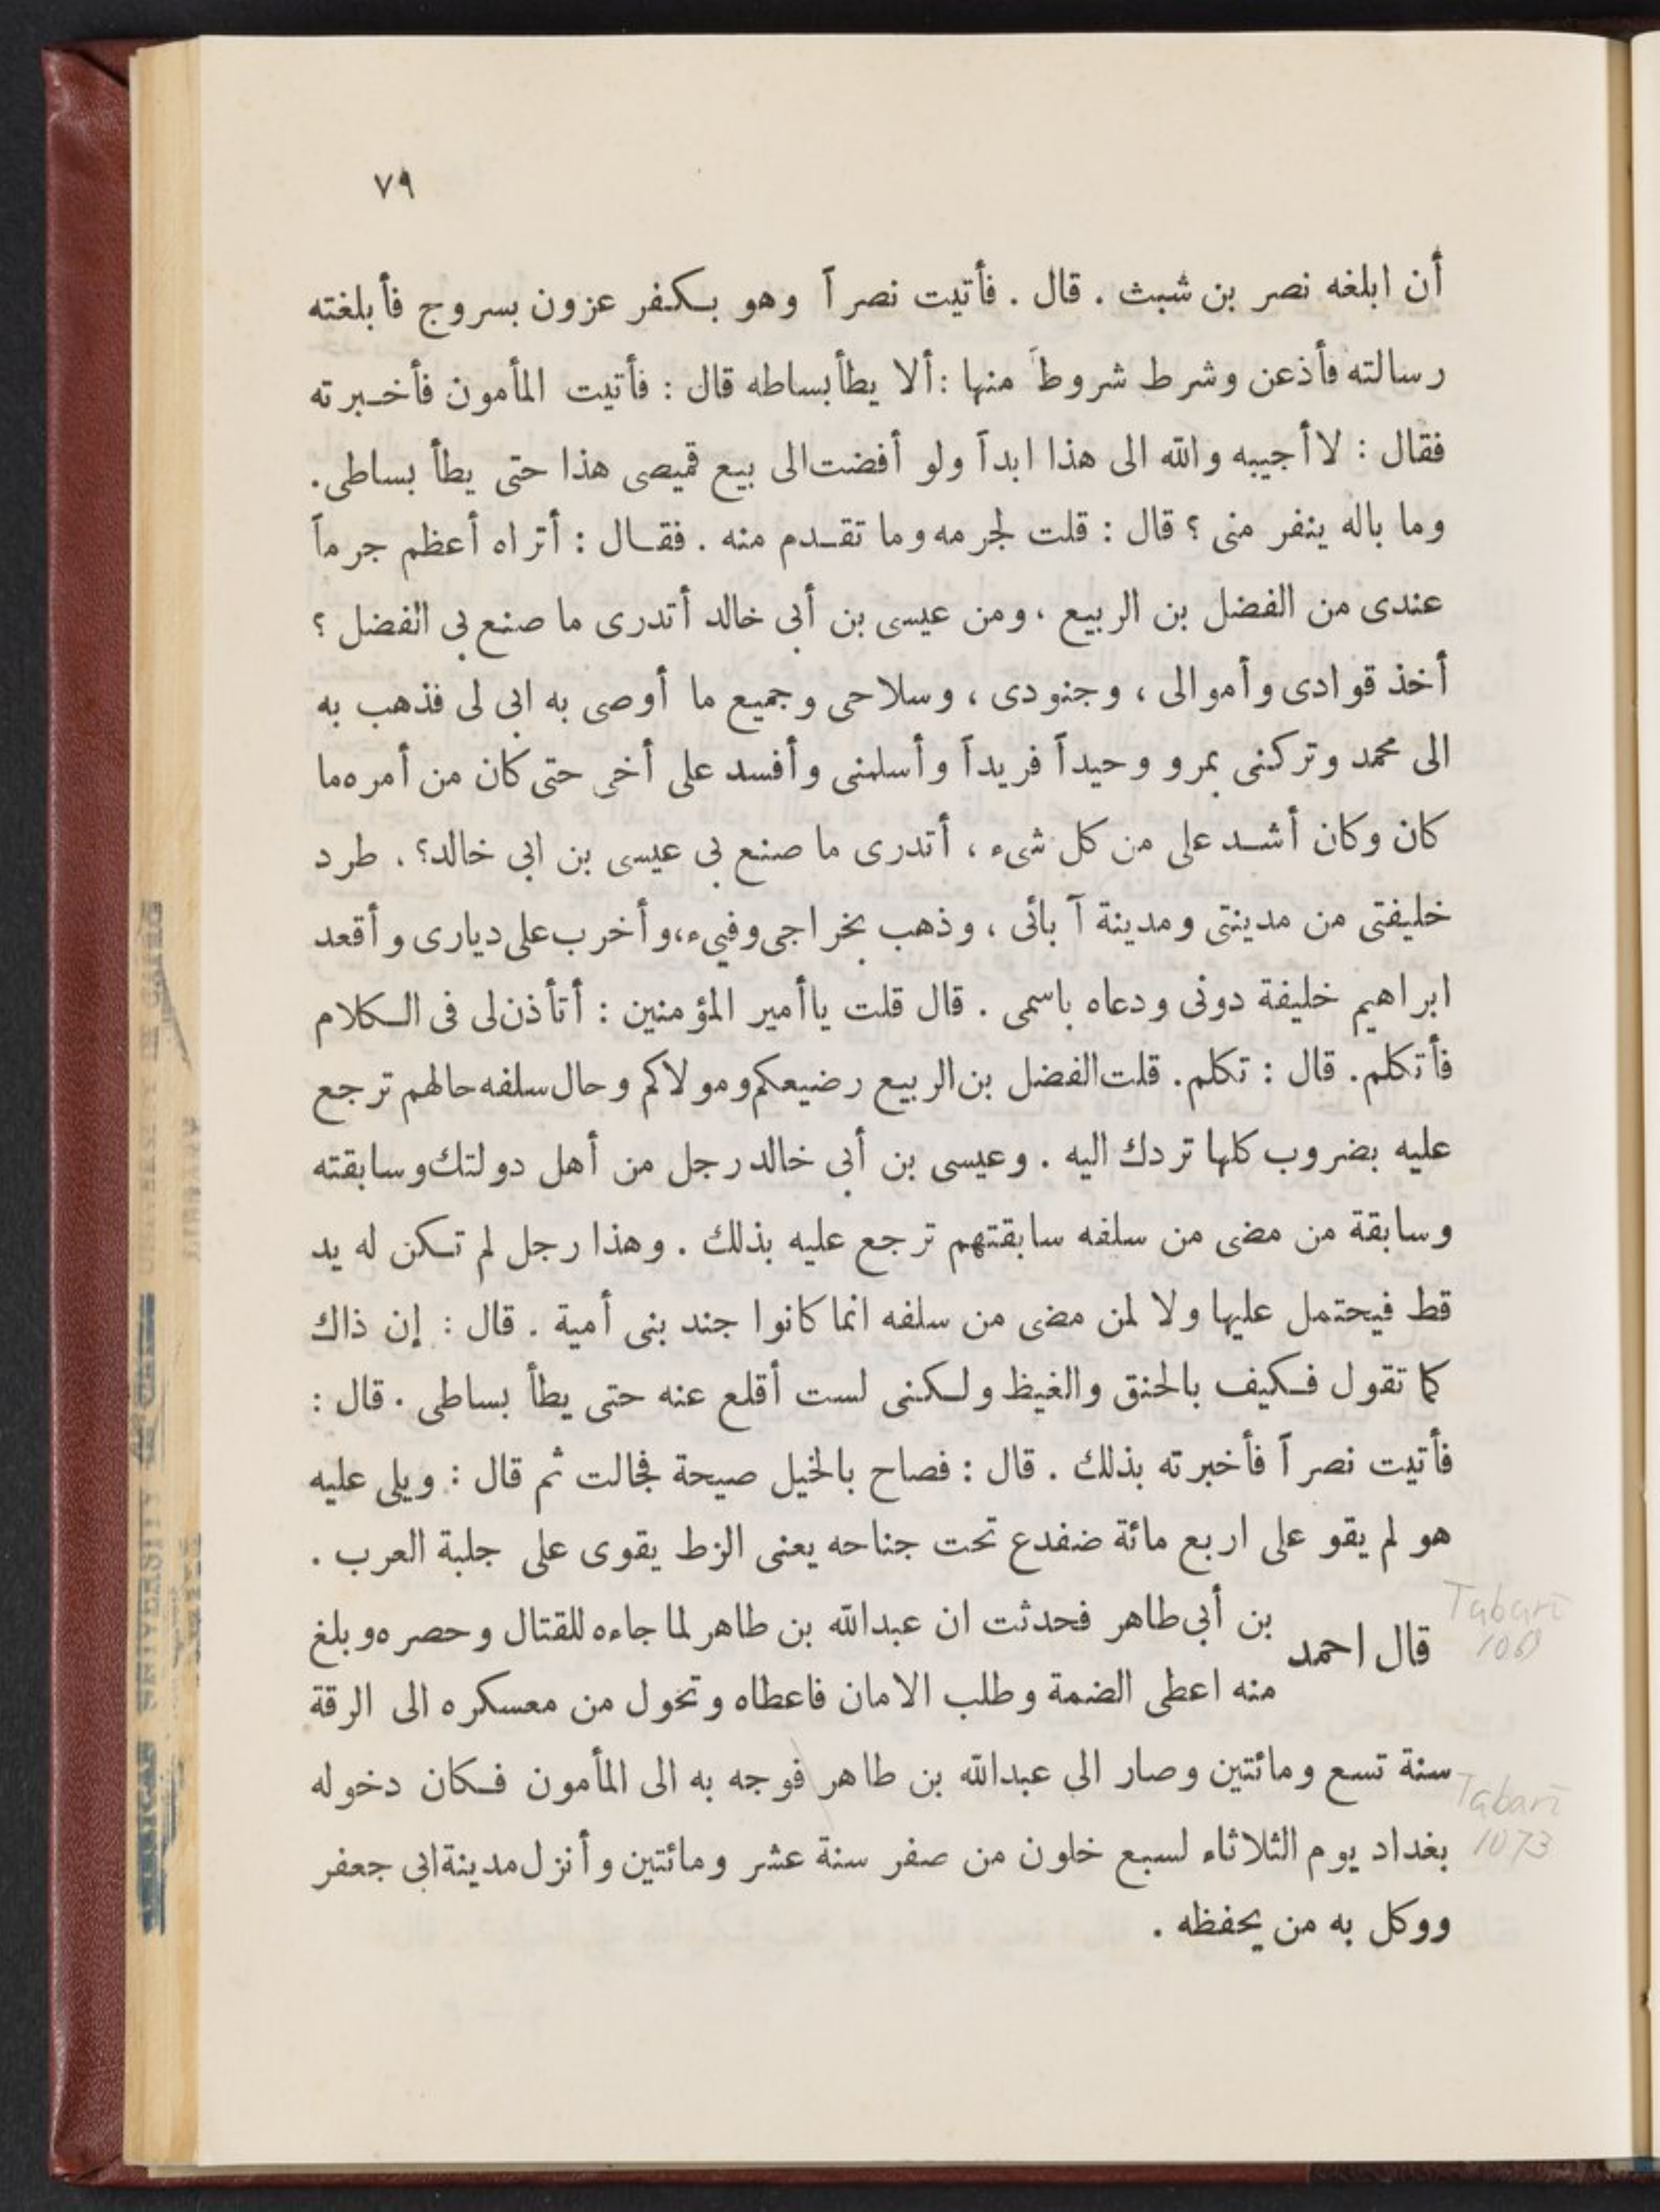 ٧٩
أن ابلغه نصر بن شبث . قال . فأتيت نصراً وهو بكفر عزون بسروج فأبلغته
رسالته فأذعن وشرط شروطاً منها : ألا يطأ بساطه قال : فأتيت المأمون فأخبرته
فقال : لا أجيبه والله الى هذا ابداً ولو أفضت الى بيع قميصى هذا حتى يطأ بساطى .
وما باله ينفر منى ؟ قال : قلت لجرمه وما تقدم منه . فقال : أتراه أعظم جرماً
عندى من الفضل بن الربيع ، ومن عيسى بن أبى خالد أتدرى ما صنع بى الفضل ؟
أخذ قوادى وأموالى ، وجنودى ، وسلاحى وجميع ما أوصى به ابى لى فذهب به
الى محمد وتركنى بمرو وحيداً فريداً وأسلمنى وأفسد على أخى حتى كان من أمره ما
كان وكان أشد على من كل شىء ، أتدرى ما صنع بى عيسى بن ابى خالد ؟ . طرد
خليفتى من مدينتى ومدينة آبائى ، وذهب بخراجى وفيىء ، وأخرب على ديارى وأقعد
ابراهيم خليفة دونى ودعاه باسمى . قال قلت يا أمير المؤمنين : أتأذن لى فى الكلام
فأتكلم . قال : تكلم . قلت الفضل بن الربيع رضيعكم ومولاكم وحال سلفه حالهم ترجع
عليه بضروب كلها تردك اليه . وعيسى بن أبى خالد رجل من أهل دولتك وسابقته
وسابقة من مضى من سلفه سابقتهم ترجع عليه بذلك . وهذا رجل لم تكن له يد
قط فيحتمل عليها ولا لمن مضى من سلفه انما كانوا جند بنى أمية . قال : إن ذاك
كما تقول فكيف بالحنق والغيظ ولكنى لست أقلع عنه حتى يطأ بساطى . قال :
فأتيت نصراً فأخبرته بذلك . قال : فصاح بالخيل صيحة فجالت ثم قال : ويلى عليه
هو لم يقو على اربع مائة ضفدع تحت جناحه يعنى الزط يقوى على جلبة العرب .
قال احمد بن أبى طاهر فحدثت ان عبدالله بن طاهر لما جاءه للقتال وحصره وبلغ
منه اعطى الضمة وطلب الامان فاعطاه وتحول من معسكره الى الرقة
سنة تسع ومائتين وصار الى عبدالله بن طاهر فوجه به الى المأمون فكان دخوله
بغداد يوم الثلاثاء لسبع خلون من صفر سنة عشر ومائتين وأنزل مدينة ابى جعفر
ووكل به من يحفظه .
Tabarī
Tabarī
1073